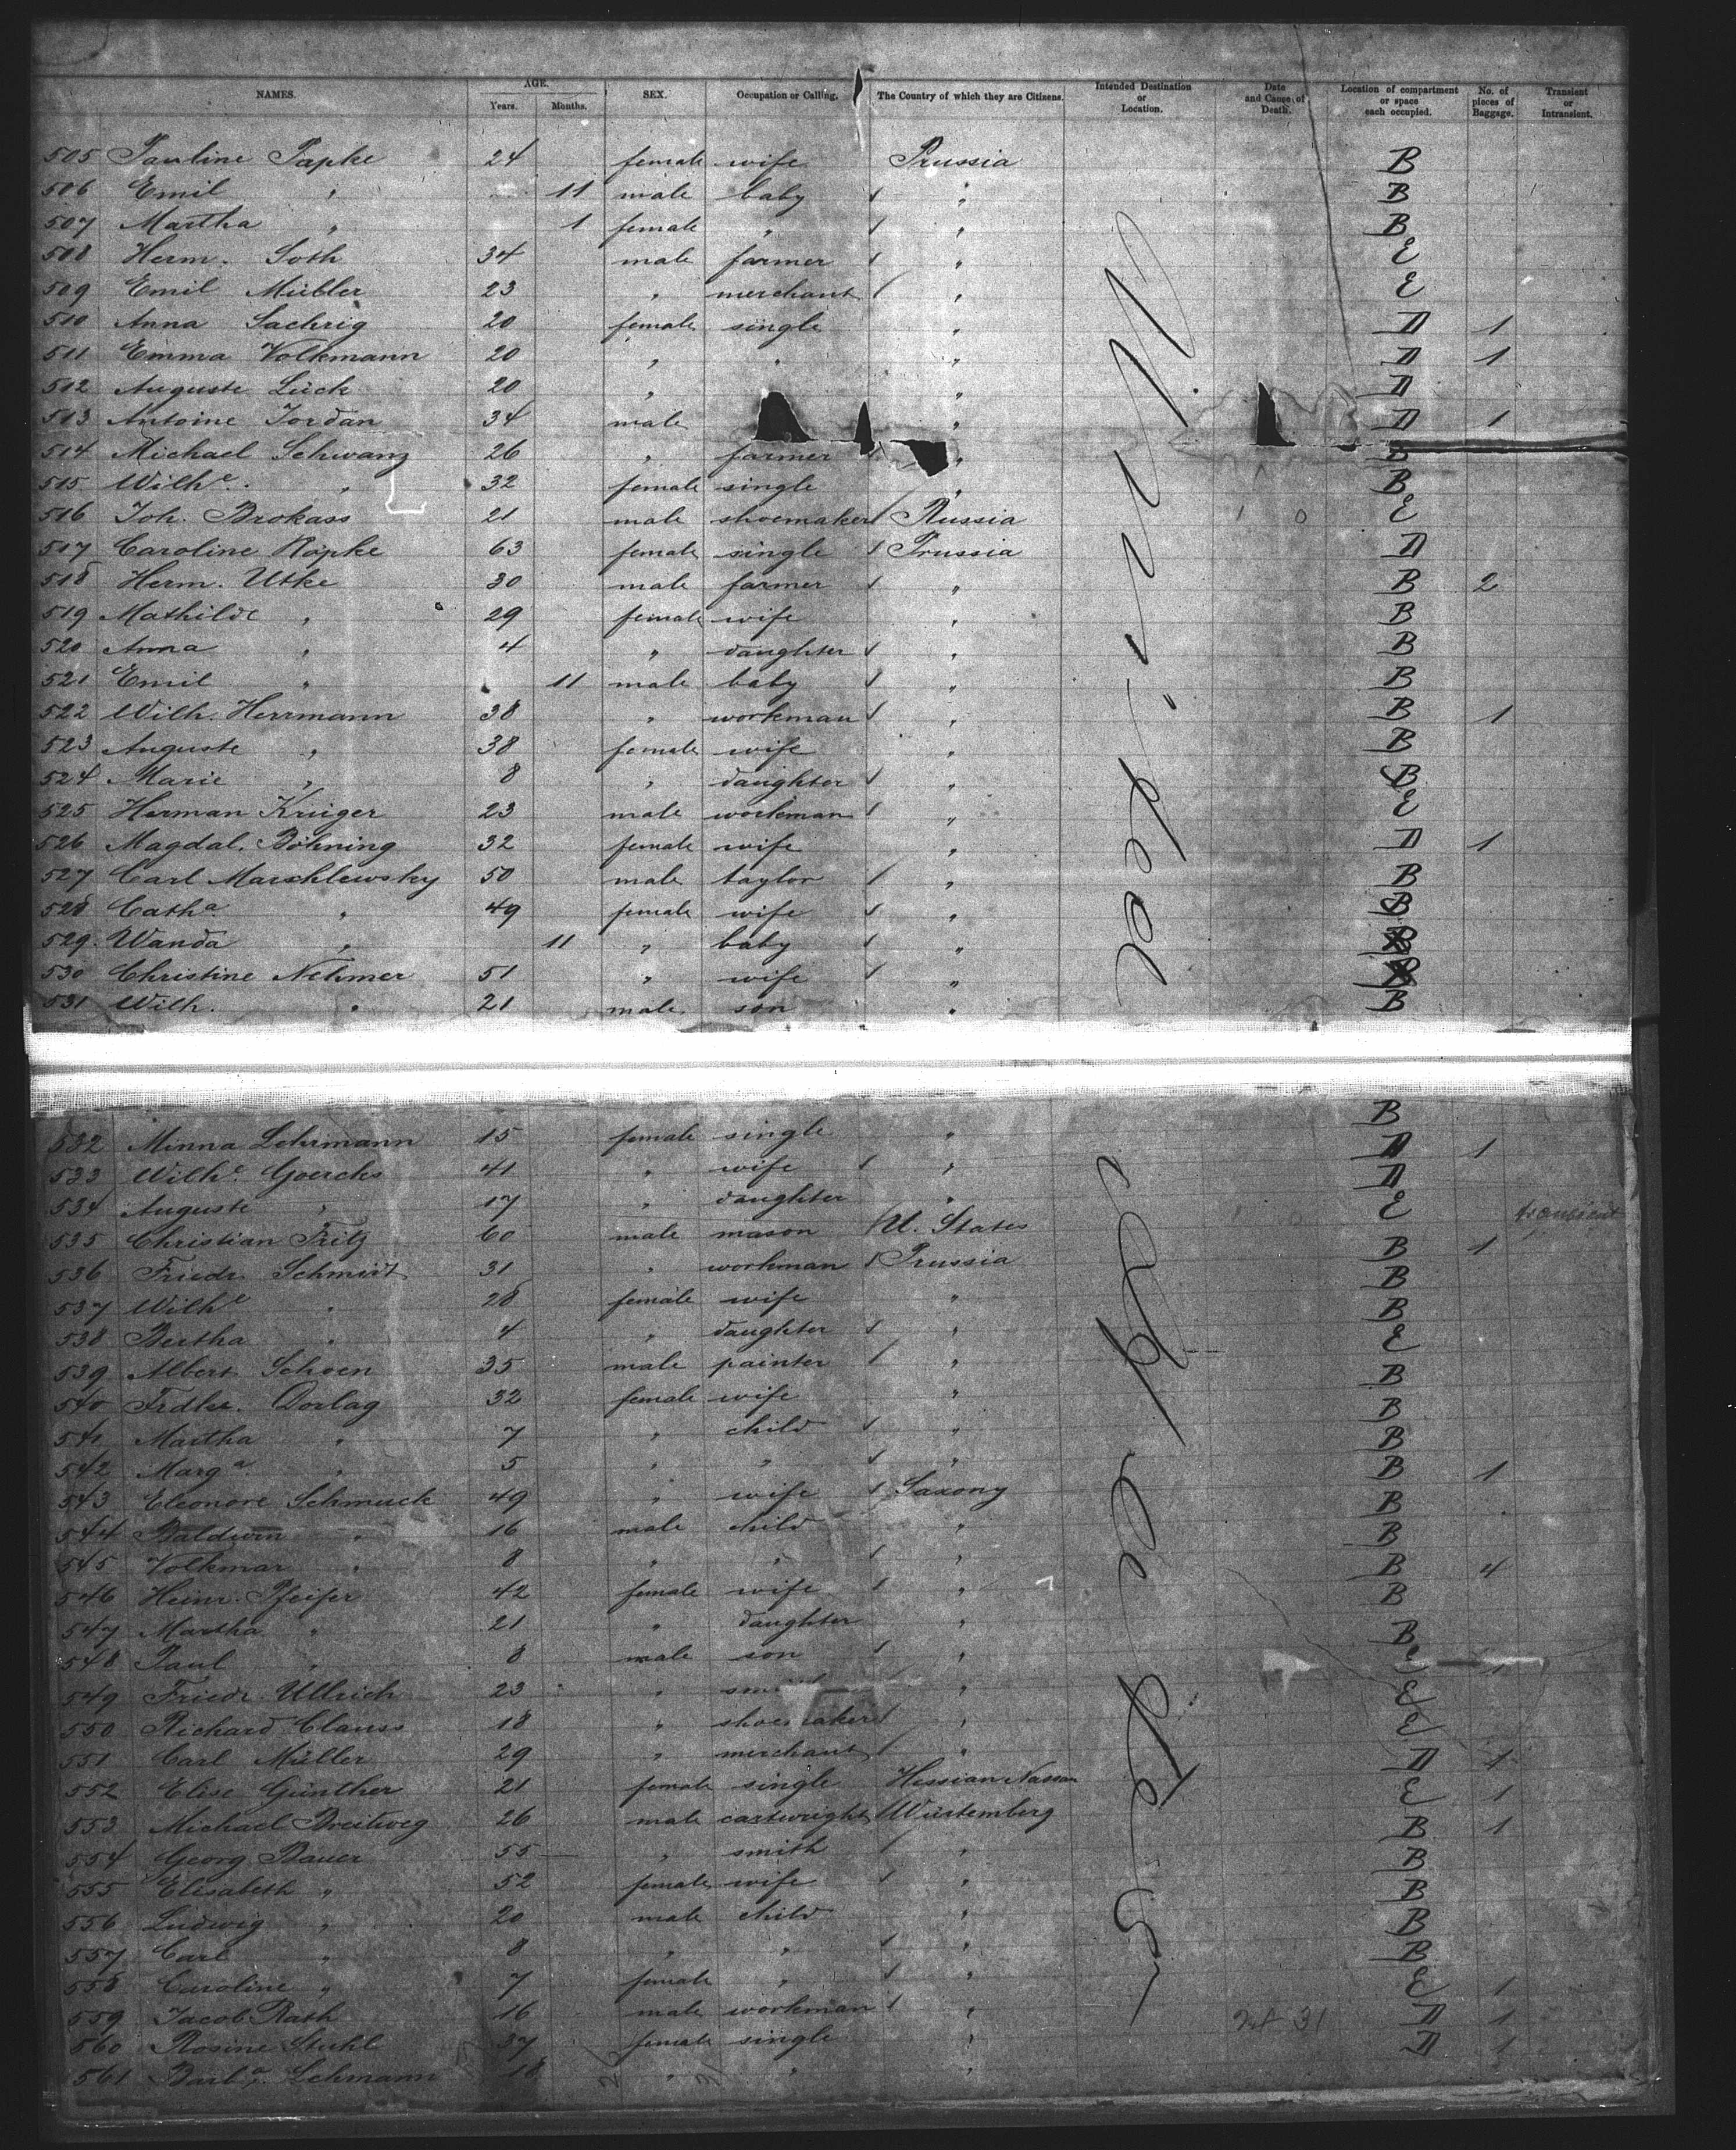 NAMES. AGE. Years. Months. SEX. Occupation or Calling. The Country of which they are Citizens. Intended Destination or Location. Date and Cause of Death. Location of compartment or space each occupied. No. of pieces of Baggage. Transient or Intransient.
505 Pauline Papke 24 female wife Prussia B
506 Emil " 11 male baby " B
507 Martha " 1 female " " B
508 Herm. Soth 34 male farmer " E
509 Emil Müller 23 " merchant " E
510 Anna Sachrig 20 female single " D 1
511 Emma Volkmann 20 " " " D 1
512 Auguste Lück 20 " " D
513 Antoine Jordan 34 male " D 1
514 Michael Schwanz 26 " farmer " B
515 Wilhe. " 32 female single " B
516 Joh. Brokass 21 male shoemaker Russia E
517 Caroline Röpke 63 female single Prussia D
518 Herm. Utke 30 male farmer " B 2
519 Mathilde " 29 female wife " B
520 Anna " 4 " daughter " B
521 Emil " 11 male baby " B
522 Wilh. Herrmann 38 " workman " B 1
523 Auguste " 38 female wife " B
524 Marie " 8 " daughter " B
525 Herman Krüger 23 male workman " E
526 Magdal. Böhning 32 female wife " D 1
527 Carl Marschlewsky 50 male taylor " B
528 Catha. " 49 female wife " B
529 Wanda " 11 " baby " B
530 Christine Nehmer 51 " wife " B
531 Wilh. " 21 male son " B
532 Minna Lehrmann 15 female single " B
533 Wilhe. Goercks 41 " wife " D 1
534 Auguste " 17 " daughter " D
535 Christian Fritz 60 male mason U. States E transient
536 Friedr. Schmidt 31 " workman Prussia B 1
537 Wilhe " 28 female wife " B
538 Bertha " 4 " daughter " B
539 Albert Schoen 35 male painter " E
540 Frdke. Dorlag 32 female wife " B
541 Martha " 7 " child " B
542 Marga. " 5 " " " B
543 Eleonore Schmuck 49 " wife Saxony B 1
544 Baldwin " 16 male child " B
545 Volkmar " 8 " " " B
546 Heinr. Pfeifer 42 female wife " B 4
547 Martha " 21 " daughter " B
548 Paul " 8 male son " B
549 Friedr. Ullrich 23 " " E 1
550 Richard Clauss 18 " shoemaker " E
551 Carl Müller 29 " merchant " E
552 Elise Günther 21 female single Hessian Nassau D 1
553 Michael Breitweg 26 male cartwright Würtemberg E 1
554 Georg Bauer 55 " smith " B 1
555 Elisabeth " 52 female wife " B
556 Ludwig " 20 male child " B
557 Carl " 8 " " " B
558 Caroline " 7 female " " B
559 Jacob Rath 16 male workman " E 1
560 Rosine Stuhl 37 female single " D 1
561 Barba. Lehmann 18 " " " D 1